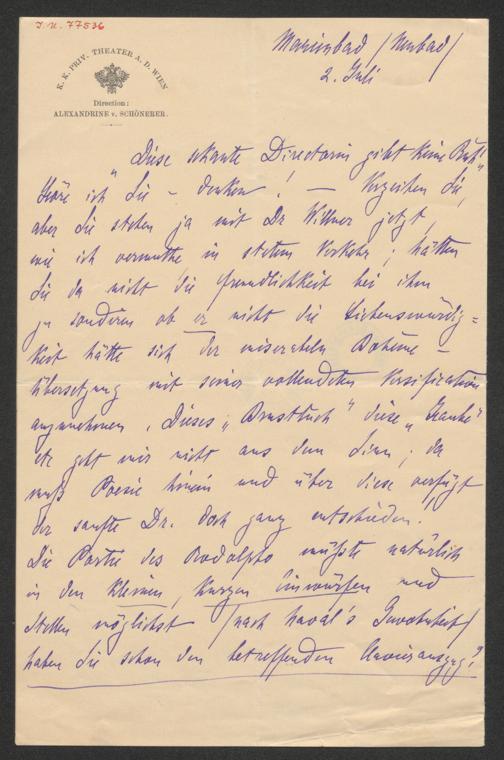 I.N. 77536
K. K. PRIV. THEATER A. D. WIEN
Direction:
ALEXANDRINE v. SCHÖNERER.
Marienbad /Neubad/
2. Juli
"Diese Directorin gibt keine Ruh!"
höre ich Sie – denken! – Verzeihen Sie,
aber Sie stehen ja mit Dr Willner jetzt,
wie ich vermuthe in stetem Verkehr; hätten
Sie da nicht die Freundlichkeit bei ihm
zu sondiren ob er nicht die Liebenswürdig=
keit hätte sich der miserabeln Bohême –
Übersetzung mit seiner vollendeten Versification
anzunehmen. Dieses "Brusttuch" diese
etc geht mir nicht aus dem Sinn; da
muß Poesie hinein und über diese verfügt
der sanfte Dr. doch ganz entschieden!
Die Partie des Rodolpho müßte natürlich
in den kleinen, kurzen Einwürfen und
Stellen möglichst /nach Naval's Gewohnheit/
haben Sie schon den betreffenden Clavierauszug?